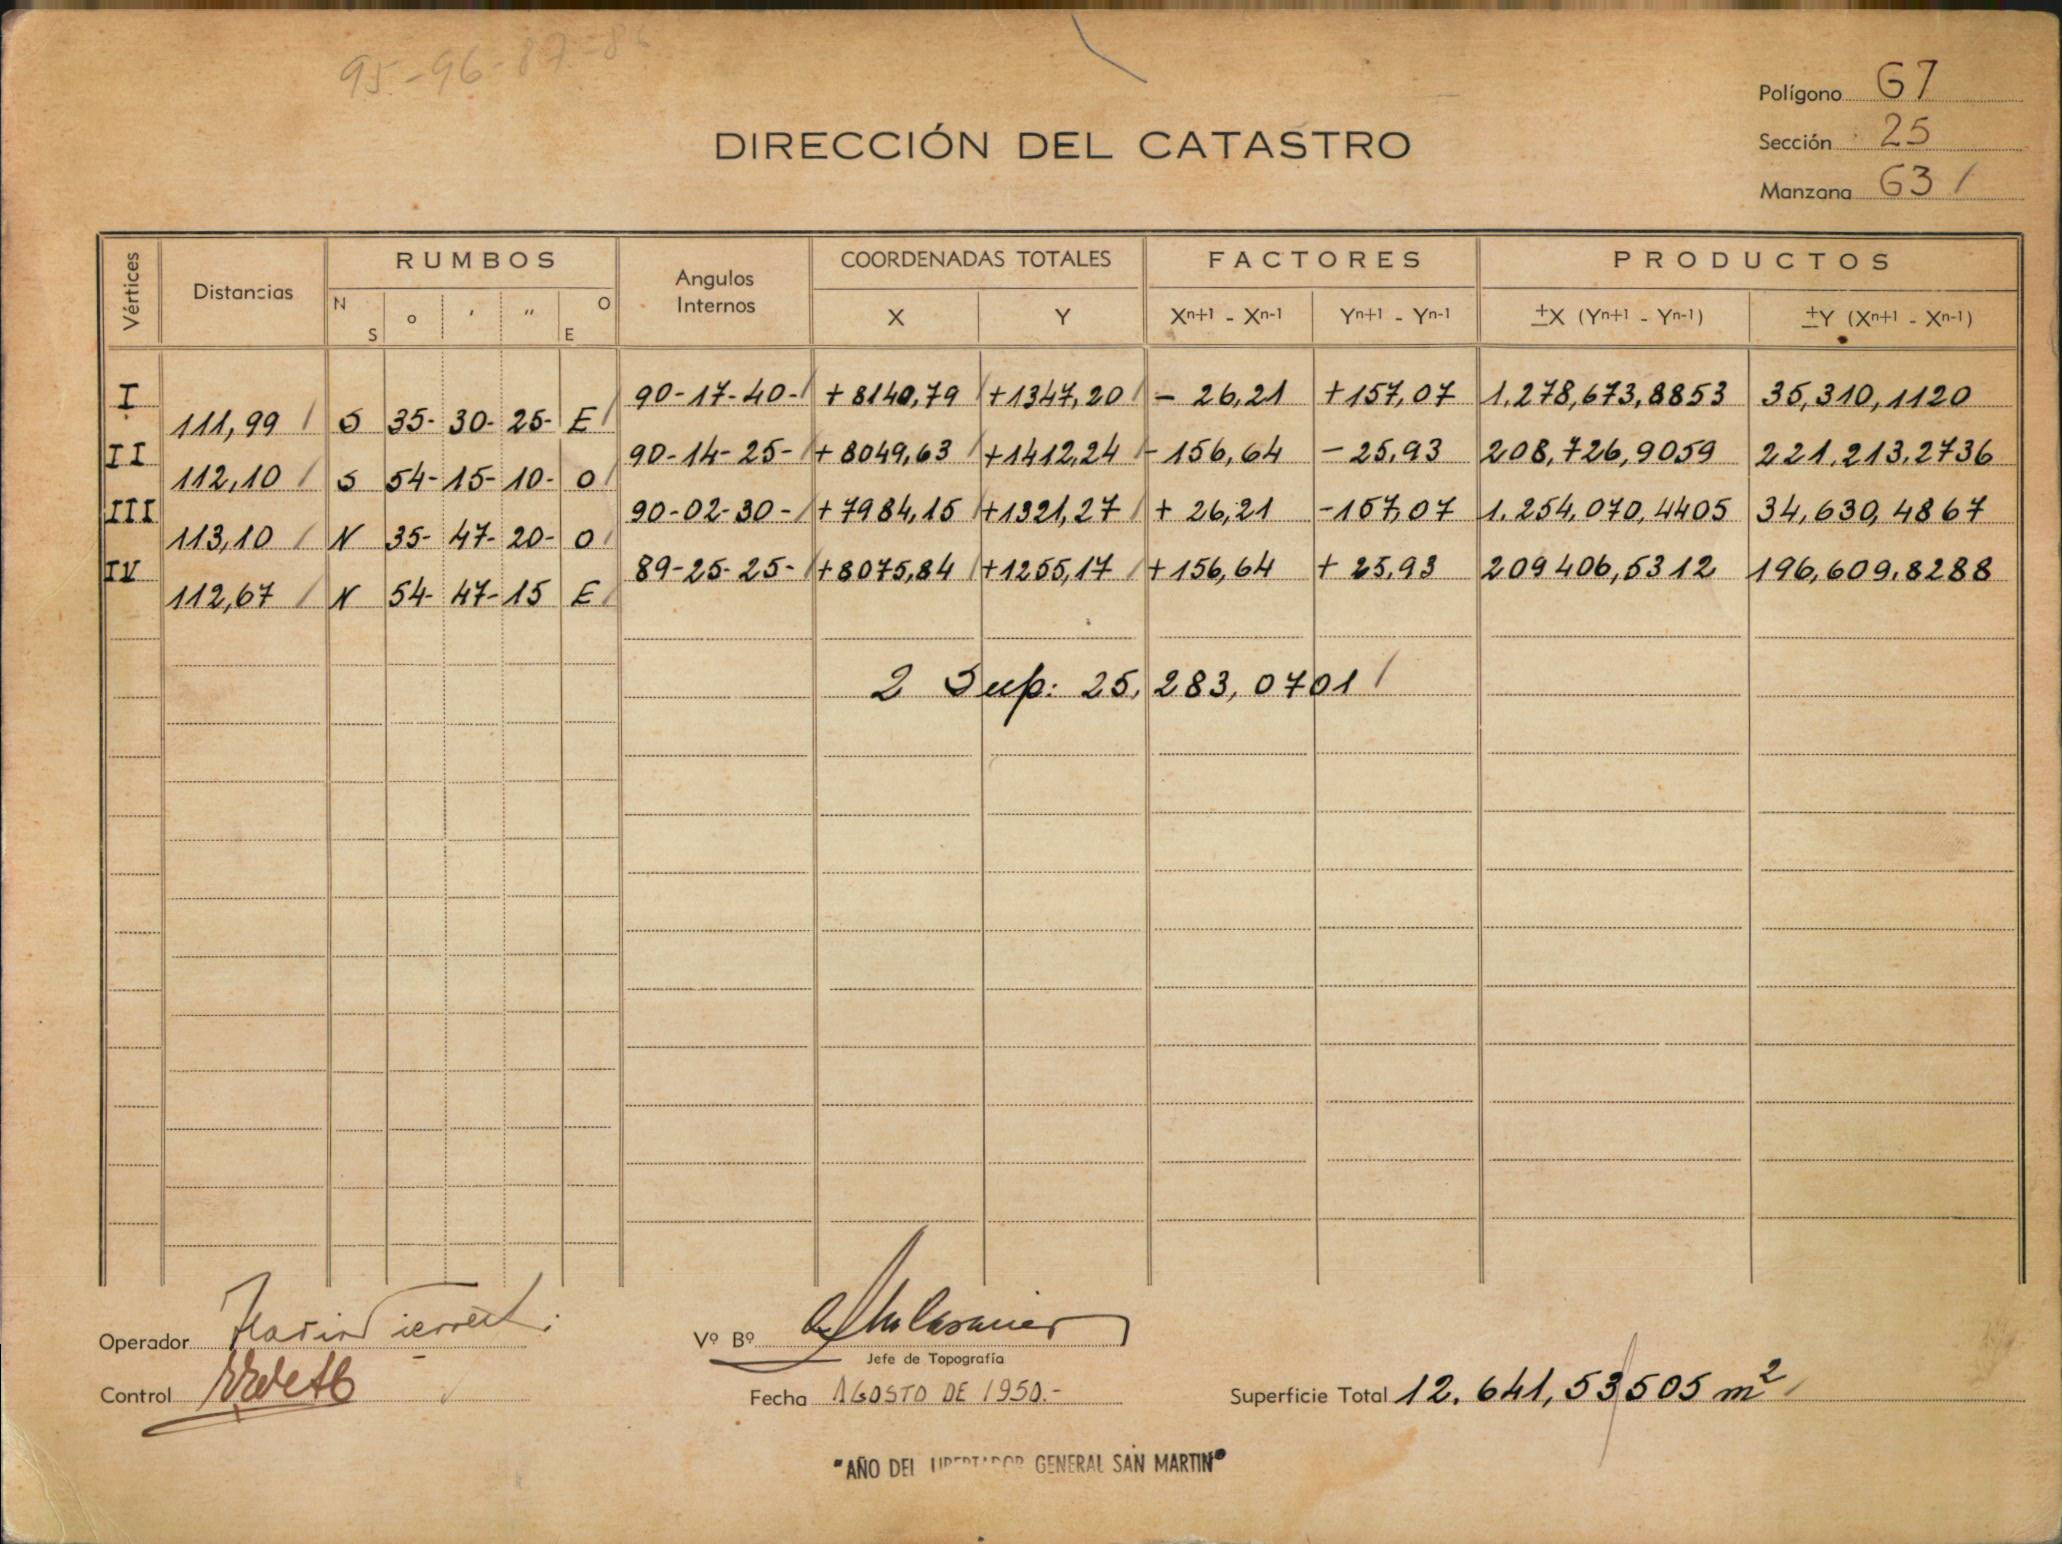 95-96-87-86
Polígono G7
Sección 25
Manzana G3 /
DIRECCIÓN DEL CATASTRO
Vértices Distancias RUMBOS Angulos Internos COORDENADAS TOTALES FACTORES PRODUCTOS
N S o ʹ ʺ O E X Y Xn+1 - Xn-1 Yn+1 - Yn-1 ±X (Yn+1 - Yn-1) ±Y (Xn+1 - Xn-1)
I 90-17-40- / +8140,79 / +1347,20 / - 26,21 +157,07 1.278,673,8853 35,310,1120
111,99 / S 35- 30- 25- E /
II 90-14-25- / +8049,63 / +1412,24 / -156,64 -25,93 208,726,9059 221.213,2736
112,10 / S 54- 15- 10- O /
III 90-02-30- / +7984,15 / +1321,27 / + 26,21 -157,07 1.254,070,4405 34,630,4867
113,10 / N 35- 47- 20- O /
IV 89-25-25- / +8075,84 / +1255,17 / +156,64 + 25,93 209406,5312 196,609.8288
112,67 / N 54- 47- 15 E /
2 Sup: 25,283,0701 /
Operador
Vº Bº
Jefe de Topografía
Control
Fecha AGOSTO DE 1950.-
Superficie Total 12.641,53/505 m² /
"AÑO DEL LIBERTADOR GENERAL SAN MARTIN"